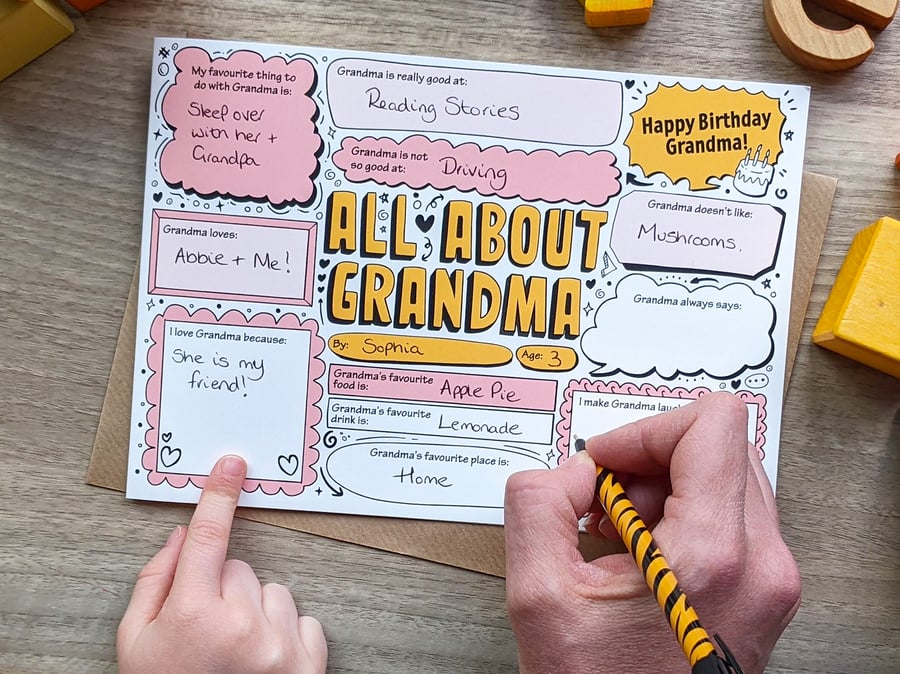 My favourite thing to
do with Grandma is:
Sleep over
with her +
Grandpa
Grandma is really good at:
Reading Stories
Grandma is not
so good at: Driving
Happy Birthday
Grandma!
Grandma loves:
Abbie + Me!
ALL ABOUT
GRANDMA
Grandma doesn't like:
Mushrooms.
Grandma always says:
By: Sophia
Age: 3
I love Grandma because:
She is my
friend!
Grandma's favourite
food is: Apple Pie
Grandma's favourite
drink is: Lemonade
Grandma's favourite place is:
Home
I make Grandma